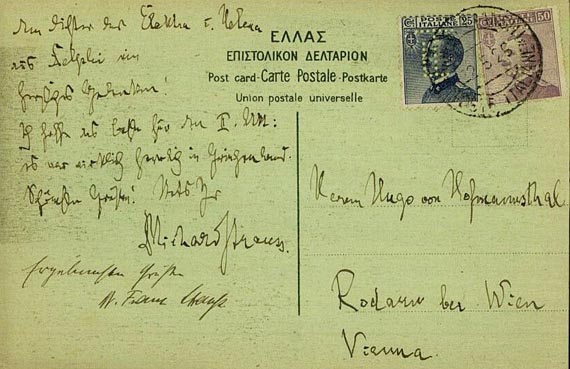 ΕΛΛΑΣ
ΕΠΙΣΤΟΛΙΚΟΝ ΔΕΛΤΑΡΙΟΝ
Post card-Carte Postale-Postkarte
Union postale universelle
POSTE ITALIANE
25
50
Dem Dichter der Elektra u. Helena
aus Delphi ein
herzliches Gedenken!
Ich hoffe das beste für den II. Akt:
es war wirklich herrlich in Griechenland.
Schönsten Grüßen! Stets Ihr
Richard Strauss.
Ergebensten Grüße
Franz Strauss
Herrn Hugo von Hofmannsthal
Rodaun bei Wien
Vienna.